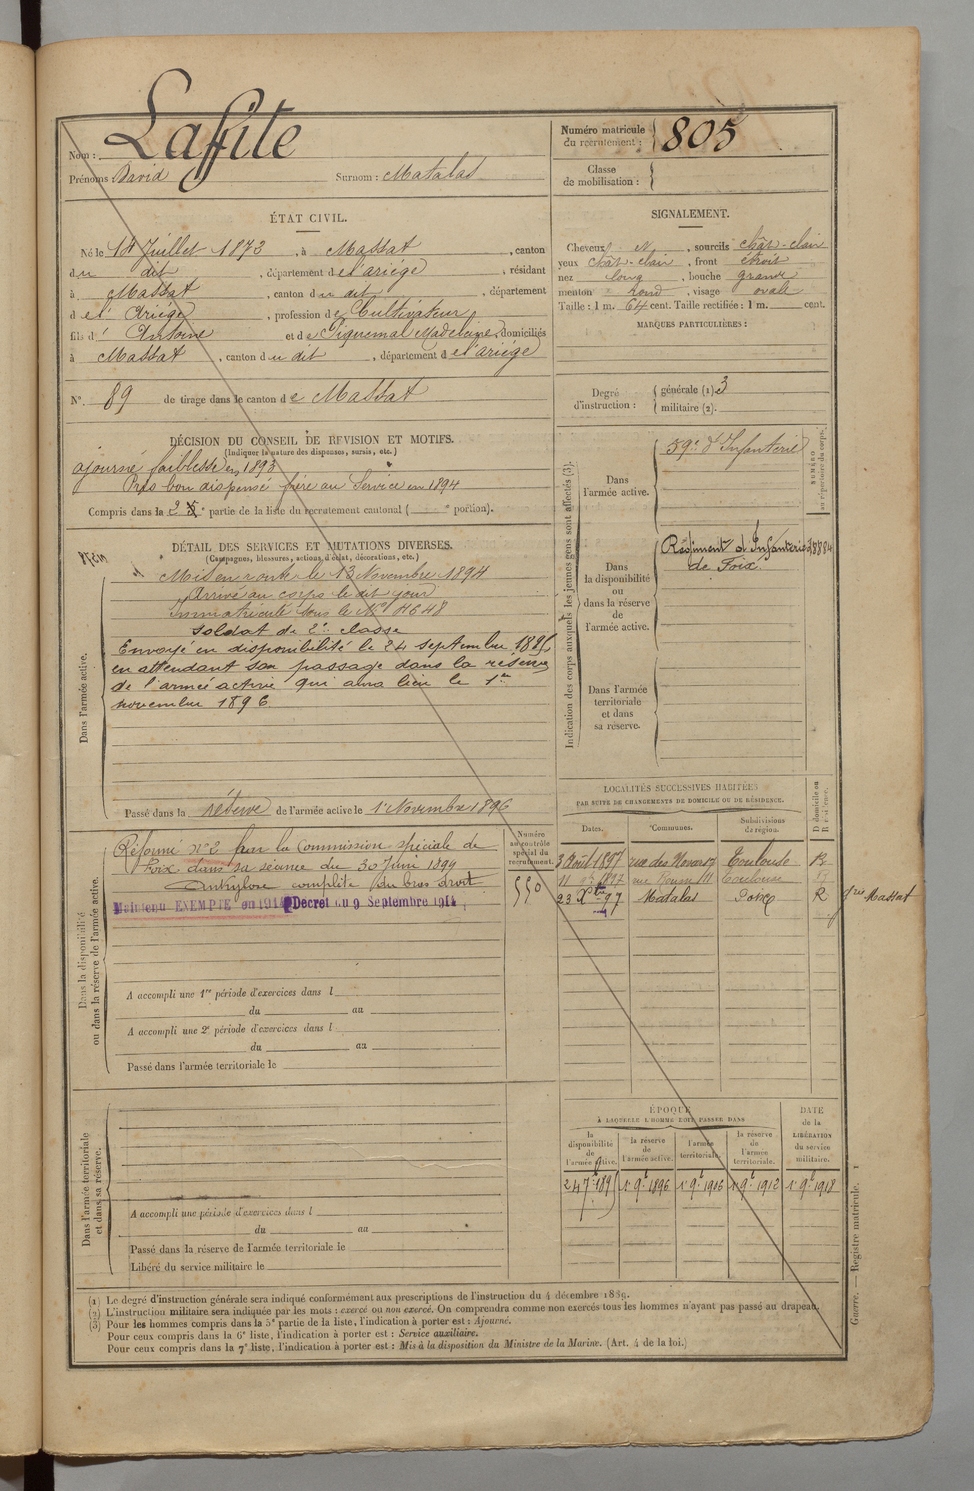 Nom : Laffite
Prénoms : David Surnom : Matalas
Numéro matricule du recrutement : 805
Classe de mobilisation :
ÉTAT CIVIL.
Né le 14 Juillet 1873, à Massat, canton
du dit, département de l'ariége, résidant
à Massat, canton du dit, département
de l'Ariége, profession de Cultivateur
fils d' Antoine et de Piquemal Madeleine, domiciliés
à Massat, canton du dit, département de l'ariége
N° 89 de tirage dans le canton de Massat
SIGNALEMENT.
Cheveux N, sourcils chât-clair
yeux chât-clair, front étroit
nez long, bouche grande
menton rond, visage ovale
Taille : 1 m. 64 cent. Taille rectifiée : 1 m. cent.
MARQUES PARTICULIÈRES :
Degré d'instruction : générale (1) 3
militaire (2).
DÉCISION DU CONSEIL DE REVISION ET MOTIFS.
(Indiquer la nature des dispenses, sursis, etc.)
ajourné faiblesse en 1893
Pris bon dispensé frère au Service en 1894
Compris dans la 2e partie de la liste du recrutement cantonal ( e portion).
DÉTAIL DES SERVICES ET MUTATIONS DIVERSES.
(Campagnes, blessures, actions d'éclat, décorations, etc.)
Dans l'armée active.
Mis en route le 13 Novembre 1894
Arrivé au corps le dit jour
Immatriculé sous le N°
Soldat de 2e classe
Envoyé en disponibilité le 24 septembre 1895
en attendant son passage dans la réserve
de l'armée active qui aura lieu le 1er
novembre 1896
Passé dans la réserve de l'armée active le 1 Novembre 1896
Indication des corps auxquels les jeunes gens sont affectés (3).
NUMÉRO au répertoire du corps.
Dans l'armée active.
59e d'Infanterie
Dans la disponibilité ou dans la réserve de l'armée active.
Régiment d'Infanterie
de Foix
Dans l'armée territoriale et dans sa réserve.
Dans la disponibilité ou dans la réserve de l'armée active.
Réformé n°2 par la Commission spéciale de
Foix dans sa séance du 30 Juin 1899
Ankylose complète du bras droit
Maintenu EXEMPTE en 1914 Decret du 9 Septembre 1914
Numéro au contrôle spécial du recrutement.
550
A accompli une 1re période d'exercices dans l
du au
A accompli une 2e période d'exercices dans l
du au
Passé dans l'armée territoriale le
LOCALITÉS SUCCESSIVES HABITÉES
PAR SUITE DE CHANGEMENTS DE DOMICILE OU DE RÉSIDENCE.
Dates. Communes. Subdivisions de région. D domicile ou R résidence.
3 Août 1897 Toulouse R
1897 Toulouse
23 Xbre 97 Matalas Foix R Massat
Dans l'armée territoriale et dans sa réserve.
A accompli une période d'exercices dans l
du au
Passé dans la réserve de l'armée territoriale le
Libéré du service militaire le
ÉPOQUE
À LAQUELLE L'HOMME DOIT PASSER DANS
la disponibilité de l'armée active.
la réserve de l'armée active.
l'armée territoriale.
la réserve de l'armée territoriale.
DATE de la LIBÉRATION du service militaire.
24 7bre 1895 1 9bre 1896 1 9bre 1906 1 9bre 1912 1 9bre 1918
(1) Le degré d'instruction générale sera indiqué conformément aux prescriptions de l'instruction du 4 décembre 1889.
(2) L'instruction militaire sera indiquée par les mots : exercé ou non exercé. On comprendra comme non exercés tous les hommes n'ayant pas passé au drapeau.
(3) Pour les hommes compris dans la 5e partie de la liste, l'indication à porter est : Ajourné.
Pour ceux compris dans la 6e liste, l'indication à porter est : Service auxiliaire.
Pour ceux compris dans la 7e liste, l'indication à porter est : Mis à la disposition du Ministre de la Marine. (Art. 4 de la loi.)
Guerre. — Registre matricule.